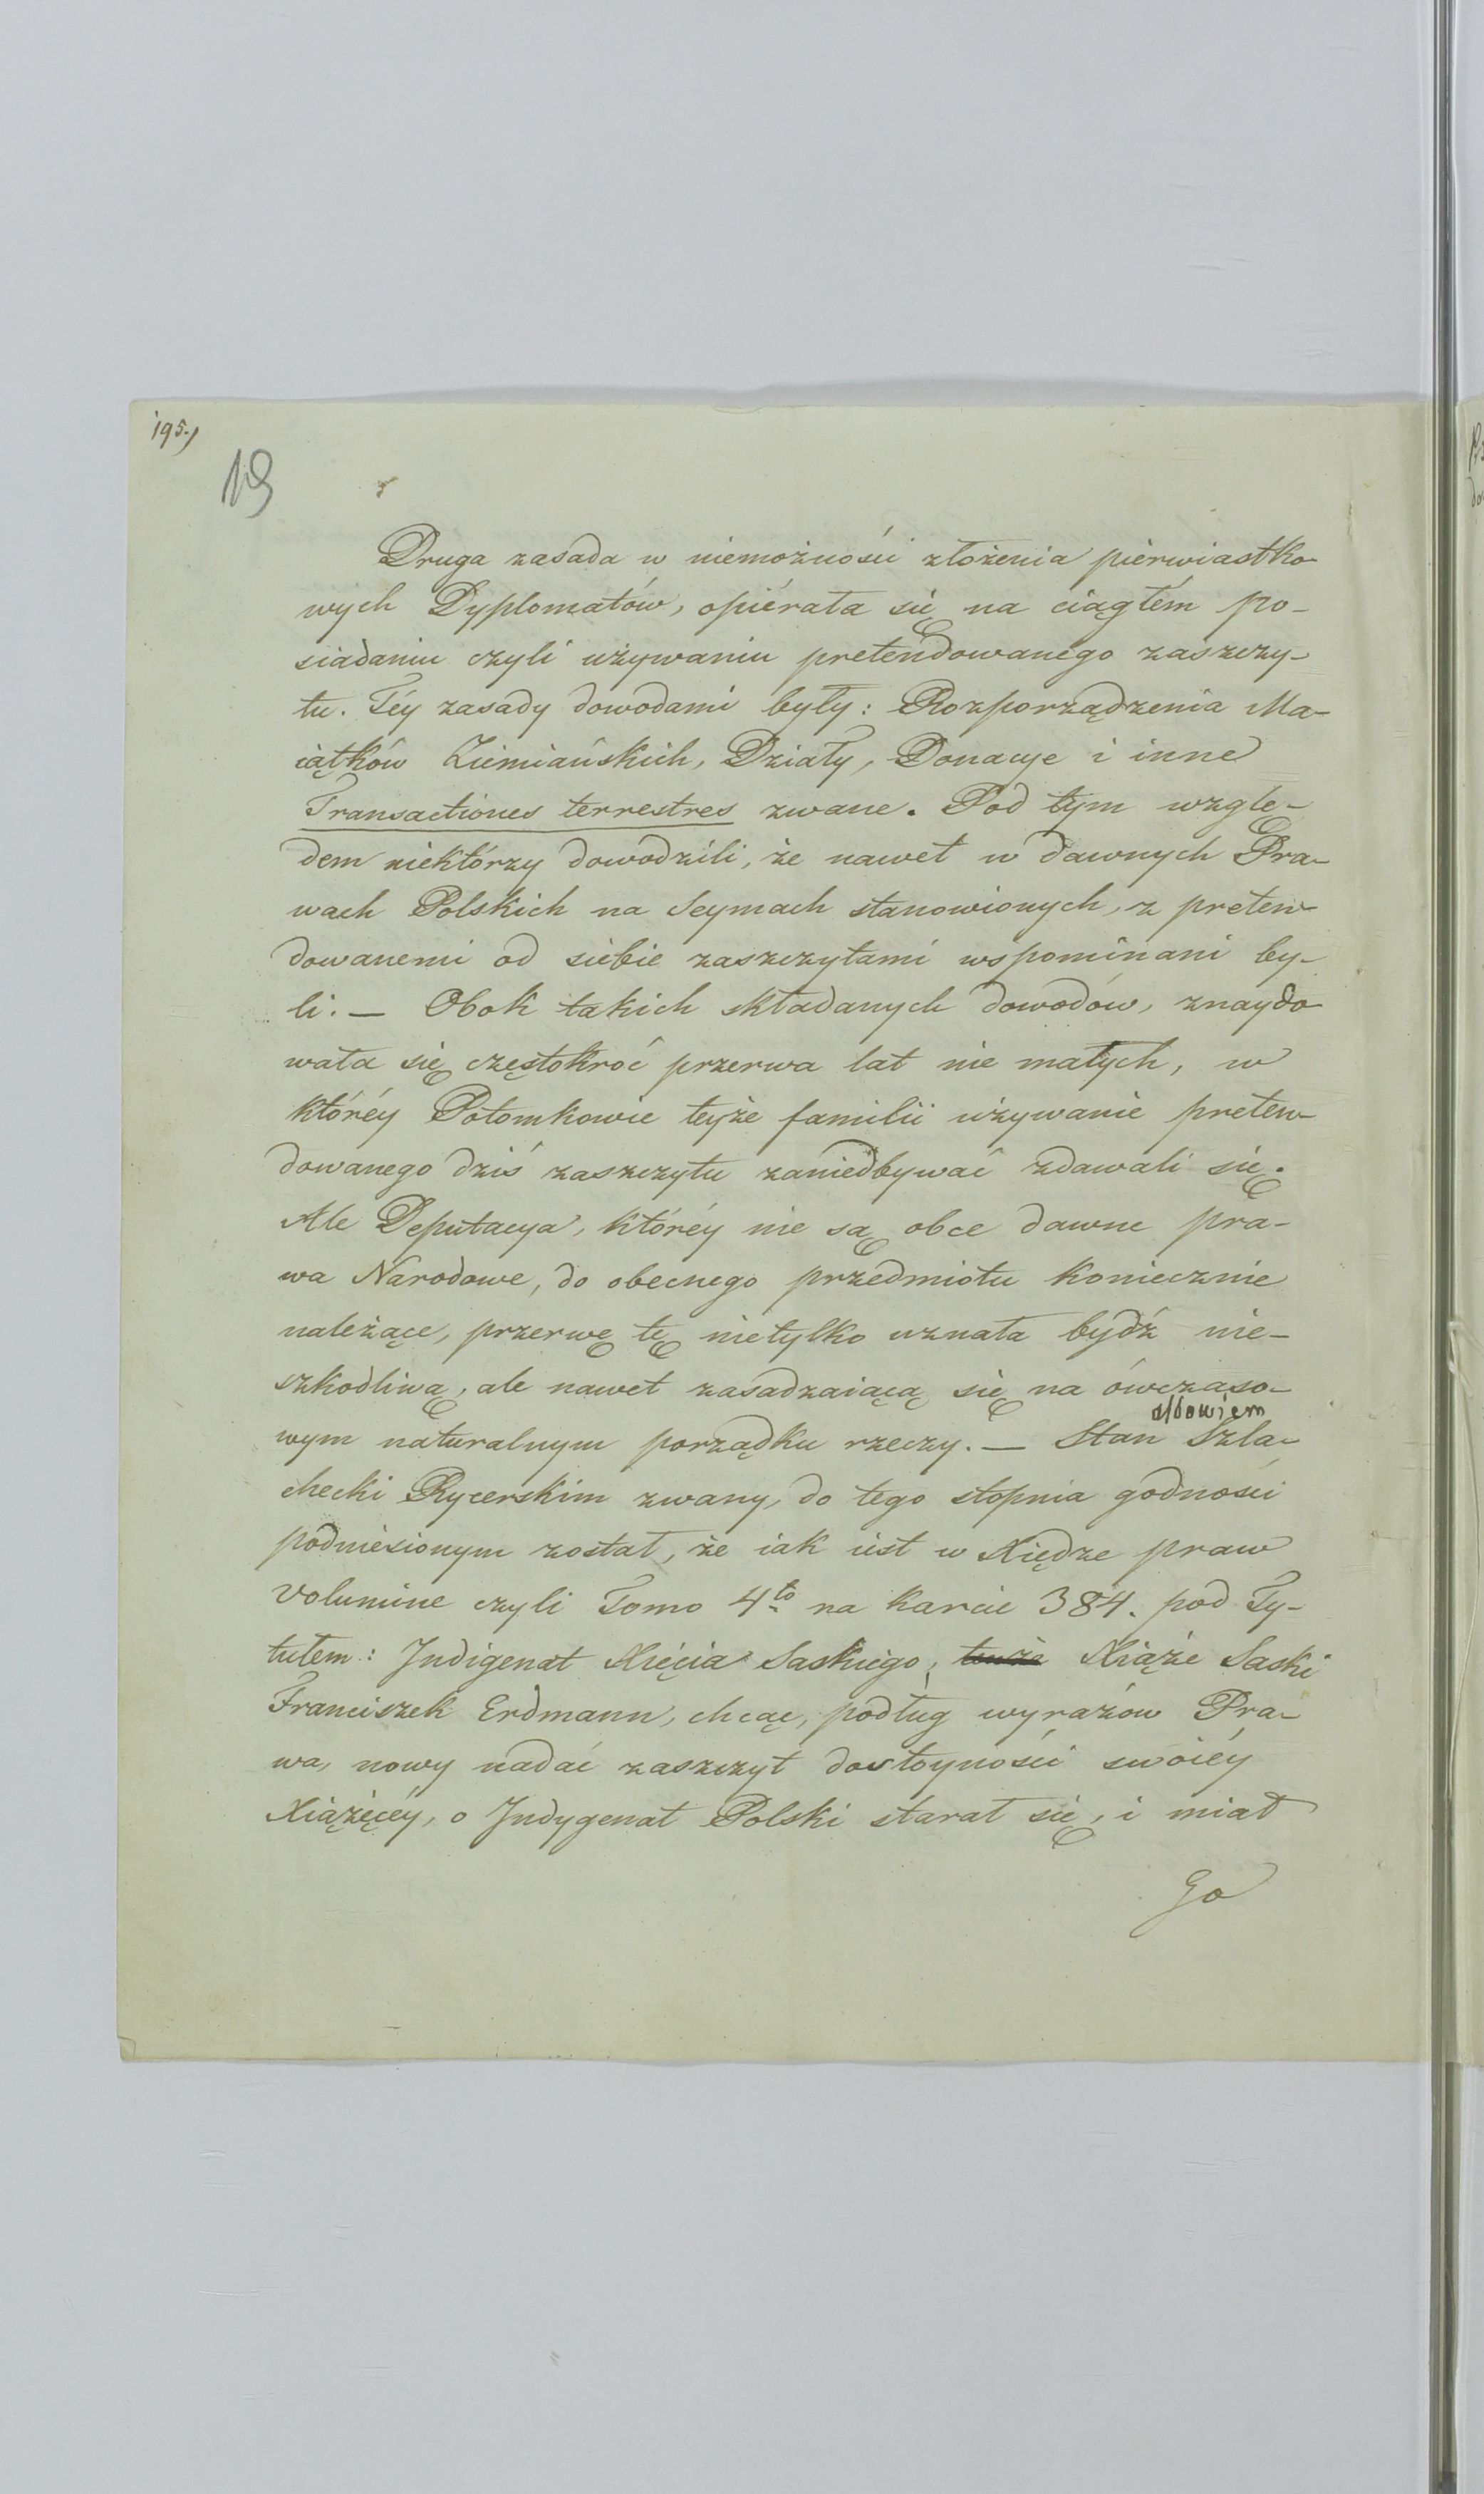 195.)
19
Druga zasada w niemożności złożenia pierwiastko-
wych Dyplomatów, opiérała się na ciągłém po-
siadaniu czyli używaniu pretendowanego zaszczy-
tu. Téy zasady dowodami były: Rozporządzenia Ma-
iątków Ziemiańskich, Działy, Donacye i inne
Transactiones terrestres zwane. Pod tym wzglę-
dem niektórzy dowodzili, że nawet w dawnych Pra-
wach Polskich na Seymach stanowionych, z preten-
dowanemi od siebie zaszczytami wspominani by-
li. — Obok takich składanych dowodów, znaydo-
wała się częstokroć przerwa lat nie małych, w
któréy Potomkowie teyże familii używanie preten-
dowanego dziś zaszczytu zaniedbywać zdawali się.
Ale Deputacya, któréy nie są obce dawne pra-
wa Narodowe, do obecnego przedmiotu koniecznie
należące, przerwę tę nietylko uznała bydź nie-
szkodliwą, ale nawet zasadzaiącą się na ówczaso-
albowiem
wym naturalnym porządku rzeczy. — Stan Szla-
checki Rycerskim zwany, do tego stopnia godności
podniesionym został, że iak iest w Xiędze praw
Volumine czyli Tomo 4to na karcie 384. pod Ty-
tułem: Indigenat Xięcia Saskiego, tenże Xiąże Saski
Franciszek Erdmann, chcąc, podług wyrazów Pra-
wa, nowy nadać zaszczyt dostoyności swoiéy
Xiążęcéy, o Indygenat Polski starał się, i miał
Go